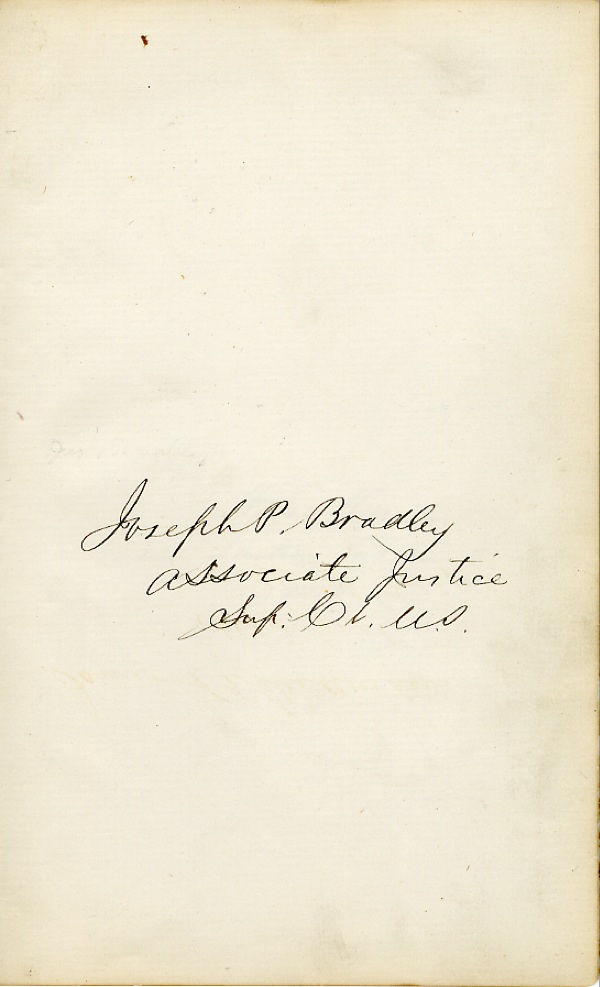 Joseph P. Bradley
Associate Justice
Sup. Ct. U.S.